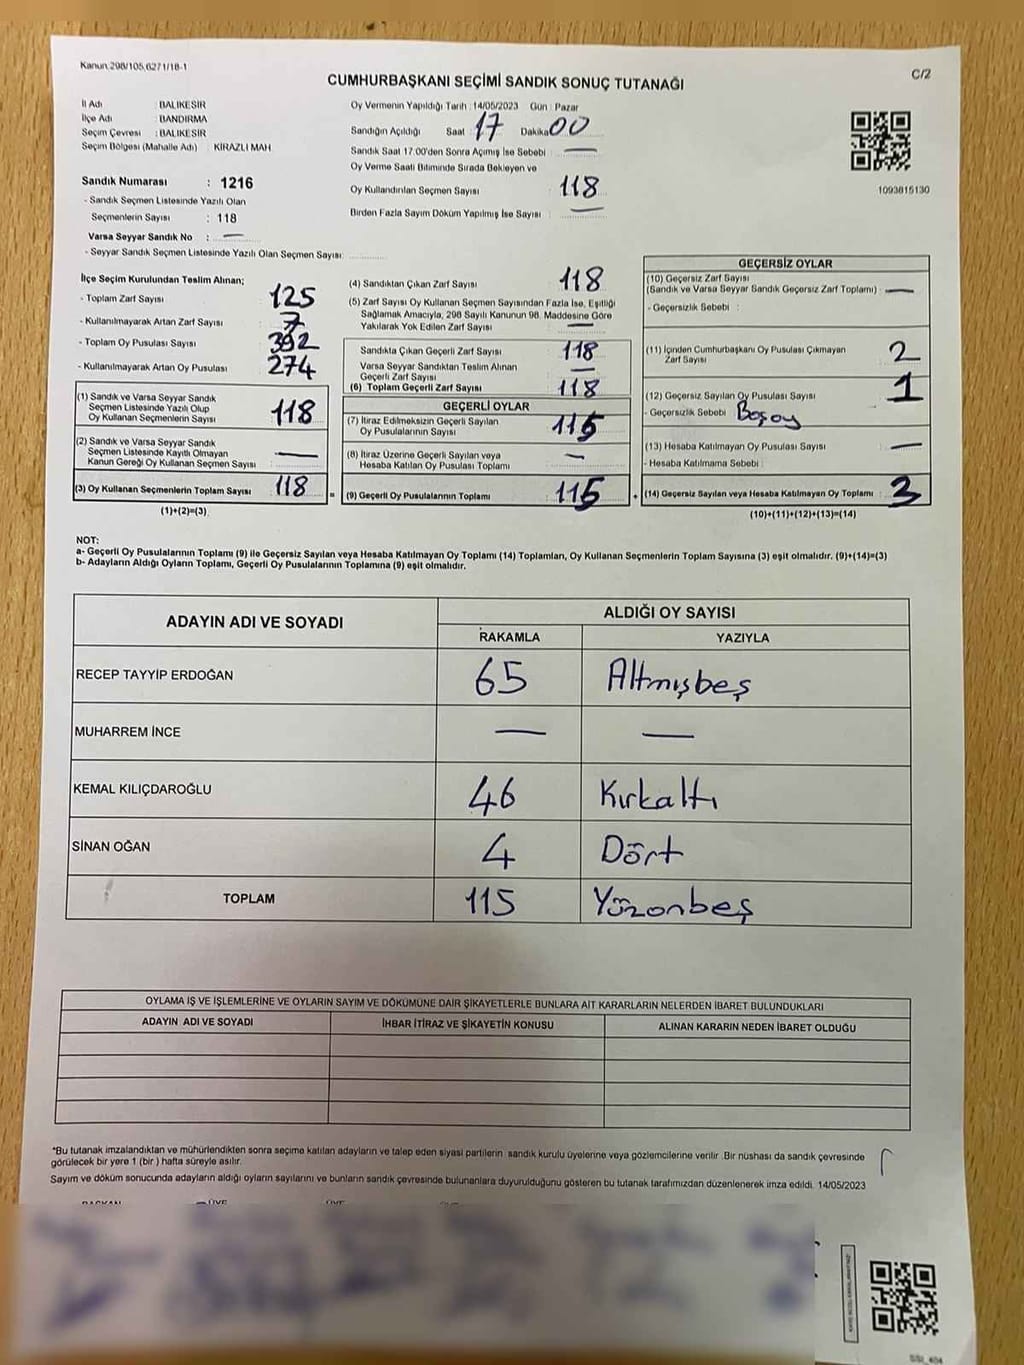 Kanun 298/105,6271/18-1
C/2
CUMHURBAŞKANI SEÇİMİ SANDIK SONUÇ TUTANAĞI
İl Adı : BALIKESİR
İlçe Adı : BANDIRMA
Seçim Çevresi : BALIKESİR
Seçim Bölgesi (Mahalle Adı) : KİRAZLI MAH
Sandık Numarası : 1216
- Sandık Seçmen Listesinde Yazılı Olan
Seçmenlerin Sayısı : 118
Varsa Seyyar Sandık No : —
- Seyyar Sandık Seçmen Listesinde Yazılı Olan Seçmen Sayısı:
Oy Vermenin Yapıldığı Tarih : 14/05/2023 Gün : Pazar
Sandığın Açıldığı Saat 17 Dakika 00
Sandık Saat 17.00'den Sonra Açımış İse Sebebi —
Oy Verme Saati Bitiminde Sırada Bekleyen ve
Oy Kullandırılan Seçmen Sayısı 118
Birden Fazla Sayım Döküm Yapılmış İse Sayısı —
1093815130
İlçe Seçim Kurulundan Teslim Alınan;
- Toplam Zarf Sayısı 125
- Kullanılmayarak Artan Zarf Sayısı 7
- Toplam Oy Pusulası Sayısı 392
- Kullanılmayarak Artan Oy Pusulası 274
(1) Sandık ve Varsa Seyyar Sandık
Seçmen Listesinde Yazılı Olup
Oy Kullanan Seçmenlerin Sayısı 118
(2) Sandık ve Varsa Seyyar Sandık
Seçmen Listesinde Kayıtlı Olmayan
Kanun Gereği Oy Kullanan Seçmen Sayısı —
(3) Oy Kullanan Seçmenlerin Toplam Sayısı 118
(1)+(2)=(3)
(4) Sandıktan Çıkan Zarf Sayısı 118
(5) Zarf Sayısı Oy Kullanan Seçmen Sayısından Fazla İse, Eşitliği
Sağlamak Amacıyla, 298 Sayılı Kanunun 98. Maddesine Göre
Yakılarak Yok Edilen Zarf Sayısı —
Sandıkta Çıkan Geçerli Zarf Sayısı 118
Varsa Seyyar Sandıktan Teslim Alınan
Geçerli Zarf Sayısı —
(6) Toplam Geçerli Zarf Sayısı 118
GEÇERLİ OYLAR
(7) İtiraz Edilmeksizin Geçerli Sayılan
Oy Pusulalarının Sayısı 115
(8) İtiraz Üzerine Geçerli Sayılan veya
Hesaba Katılan Oy Pusulası Toplamı —
= (9) Geçerli Oy Pusulalarının Toplamı 115
GEÇERSİZ OYLAR
(10) Geçersiz Zarf Sayısı
(Sandık ve Varsa Seyyar Sandık Geçersiz Zarf Toplamı) : —
- Geçersizlik Sebebi :
(11) İçinden Cumhurbaşkanı Oy Pusulası Çıkmayan
Zarf Sayısı 2
(12) Geçersiz Sayılan Oy Pusulası Sayısı 1
- Geçersizlik Sebebi Boşoy
(13) Hesaba Katılmayan Oy Pusulası Sayısı —
- Hesaba Katılmama Sebebi :
+ (14) Geçersiz Sayılan veya Hesaba Katılmayan Oy Toplamı : 3
(10)+(11)+(12)+(13)=(14)
NOT:
a- Geçerli Oy Pusulalarının Toplamı (9) ile Geçersiz Sayılan veya Hesaba Katılmayan Oy Toplamı (14) Toplamları, Oy Kullanan Seçmenlerin Toplam Sayısına (3) eşit olmalıdır. (9)+(14)=(3)
b- Adayların Aldığı Oyların Toplamı, Geçerli Oy Pusulalarının Toplamına (9) eşit olmalıdır.
ADAYIN ADI VE SOYADI
ALDIĞI OY SAYISI
RAKAMLA YAZIYLA
RECEP TAYYİP ERDOĞAN 65 Altmışbeş
MUHARREM İNCE — —
KEMAL KILIÇDAROĞLU 46 Kırkaltı
SİNAN OĞAN 4 Dört
TOPLAM 115 Yüzonbeş
OYLAMA İŞ VE İŞLEMLERİNE VE OYLARIN SAYIM VE DÖKÜMÜNE DAİR ŞİKAYETLERLE BUNLARA AİT KARARLARIN NELERDEN İBARET BULUNDUKLARI
ADAYIN ADI VE SOYADI İHBAR İTİRAZ VE ŞİKAYETİN KONUSU ALINAN KARARIN NEDEN İBARET OLDUĞU
*Bu tutanak imzalandıktan ve mühürlendikten sonra seçime katılan adayların ve talep eden siyasi partilerin sandık kurulu üyelerine veya gözlemcilerine verilir. Bir nüshası da sandık çevresinde
görülecek bir yere 1 (bir) hafta süreyle asılır.
Sayım ve döküm sonucunda adayların aldığı oyların sayılarını ve bunların sandık çevresinde bulunanlara duyurulduğunu gösteren bu tutanak tarafımızdan düzenlenerek imza edildi. 14/05/2023
BAŞKAN ÜYE ÜYE